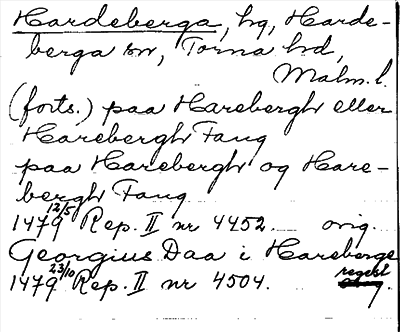 Hardeberga, by, Harde-
berga sn, Torna hd,
Malm. l.
(forts.) paa Harebergh eller
Harebergh Fang
paa Harebergh og Hare-
bergh Fang
1479 12/5 Rep. II nr 4452. orig.
Georgius Daa i Hareberge
1479 23/10 Rep. II nr 4504. regest